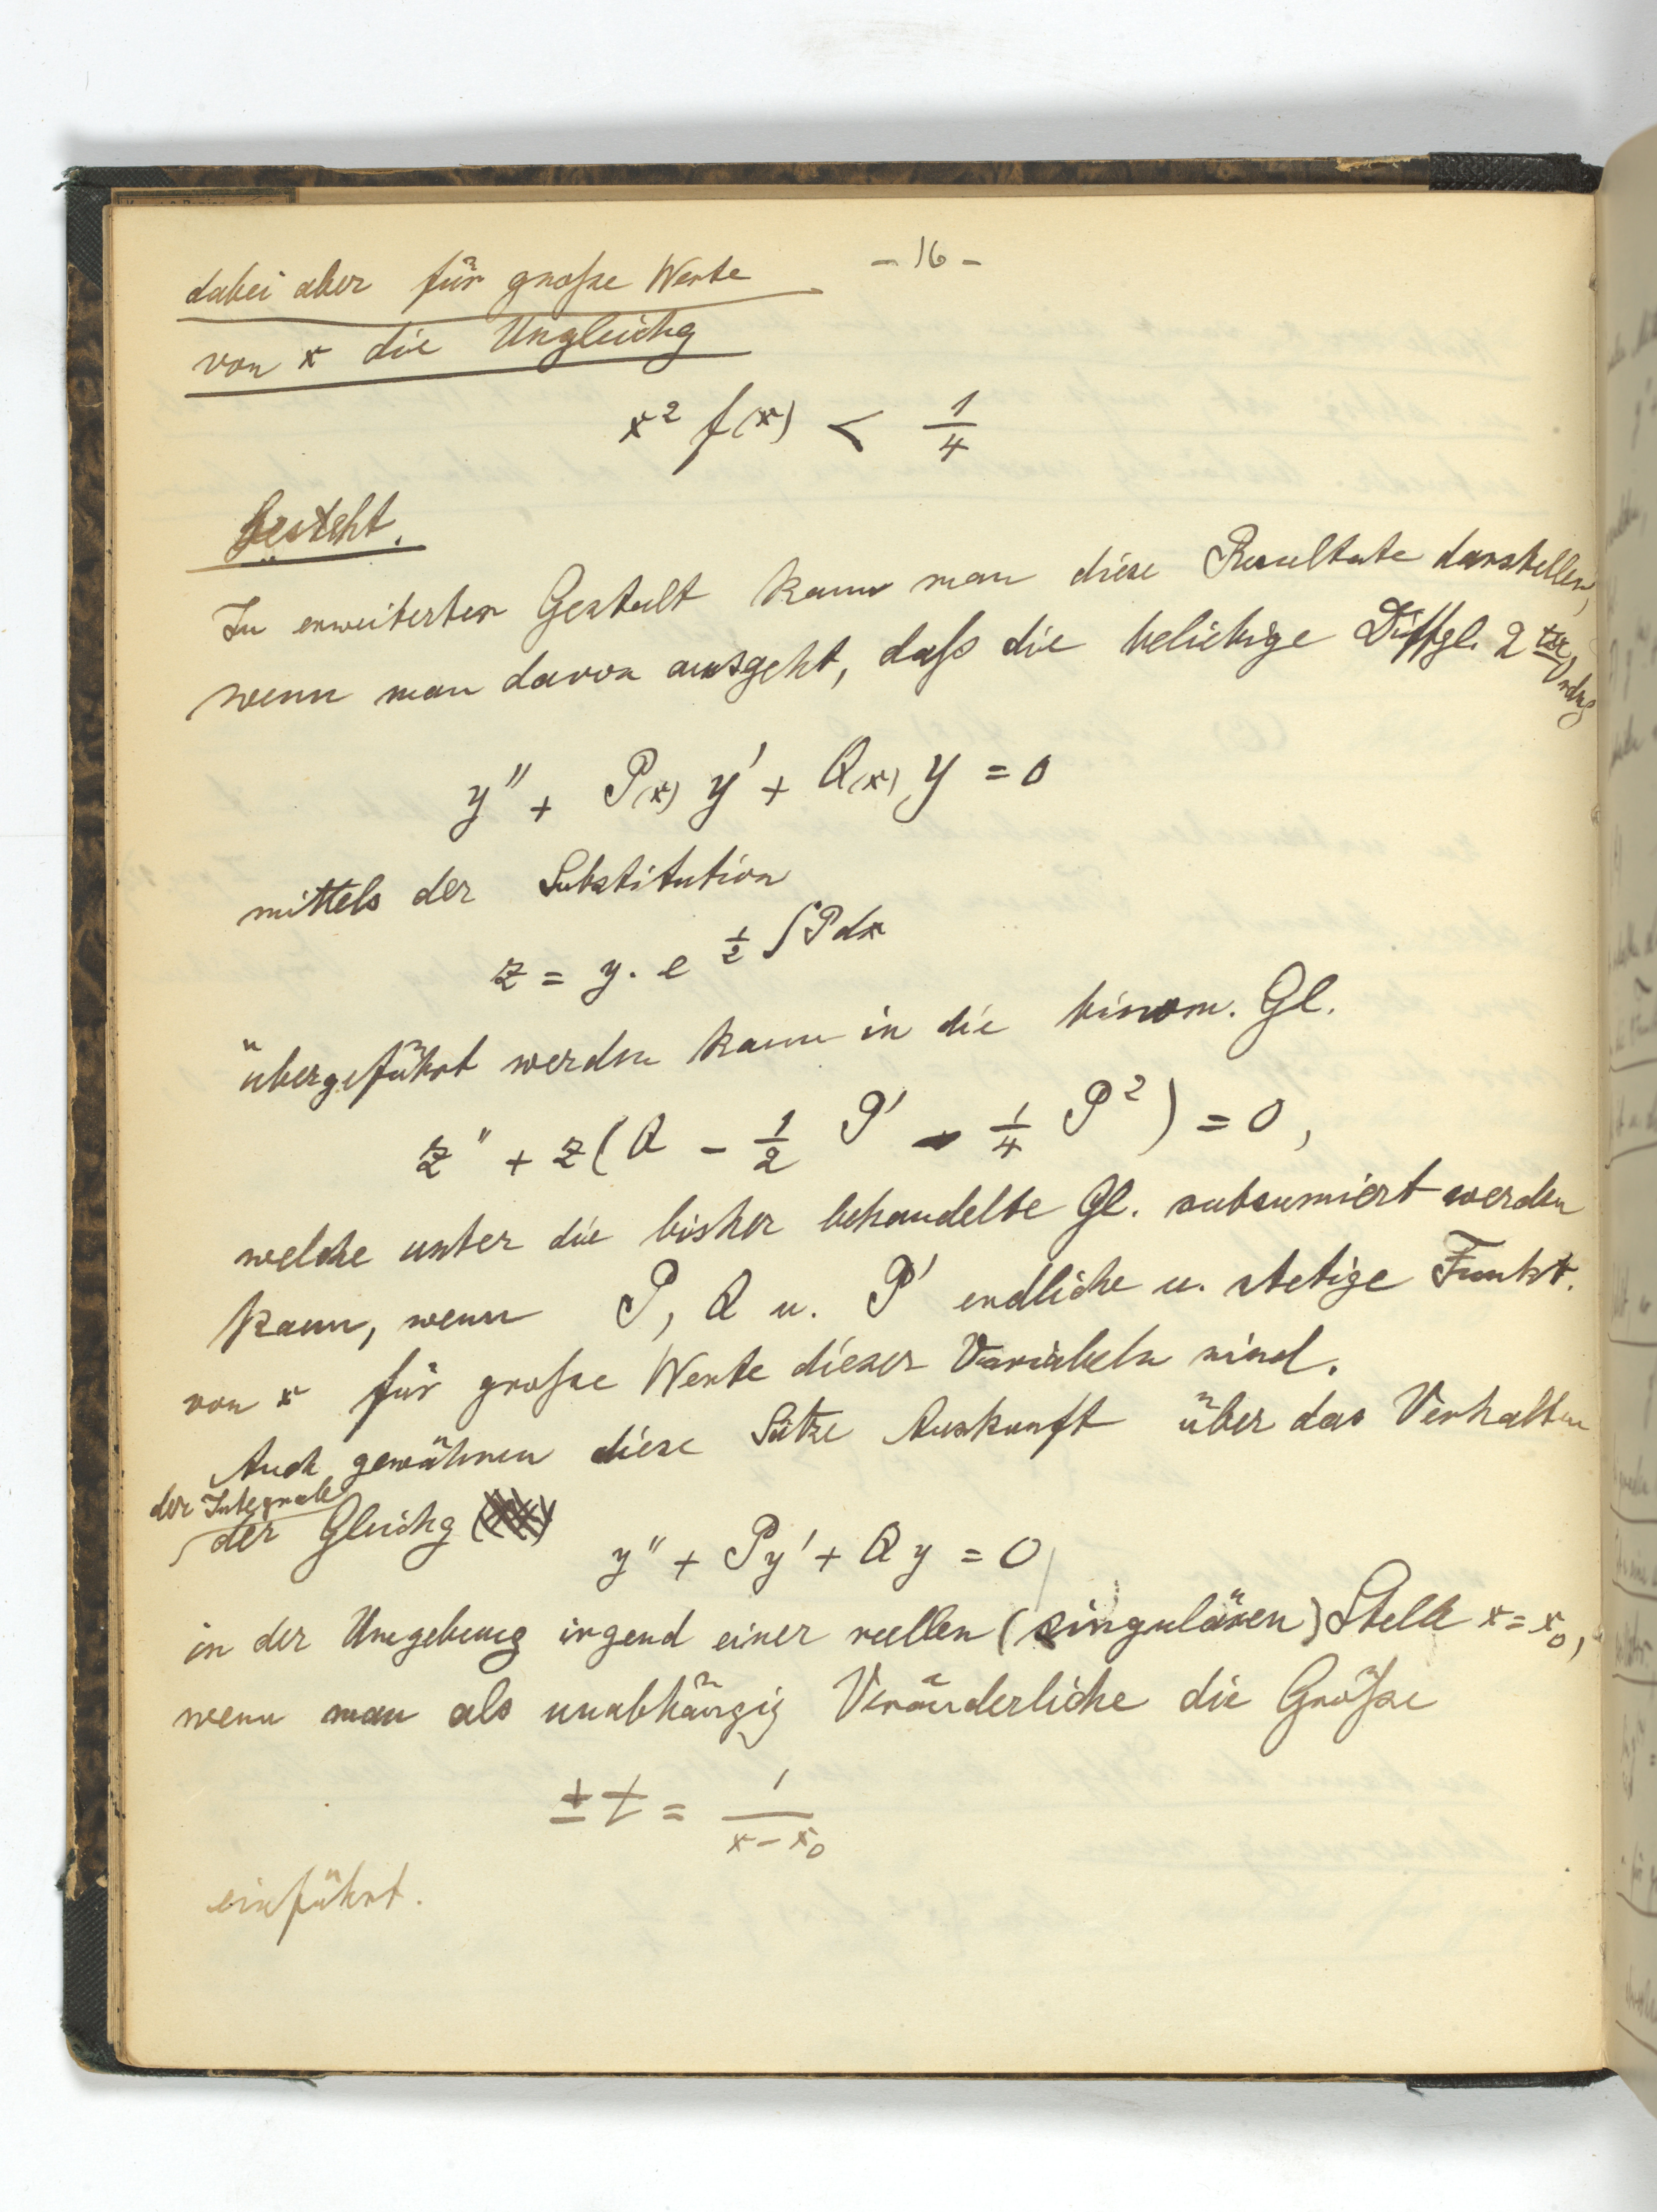 - 16 -
dabei aber für große Werte
von x die Ungleichg
x² f(x) < 1/4
besteht.
In erweiterter Gestalt kann man diese Resultate darstellen,
wenn man davon ausgeht, daß die beliebige Diffgl. 2 ter Ordng
y'' + P(x) y' + Q(x) y = 0
mittels der Substitution
z = y. e ^ 1/2 ∫ P dx
übergeführt werden kann in die binom. Gl.
z'' + z ( Q - 1/2 P' - 1/4 P² ) = 0,
welche unter die bisher behandelte Gl. subsumiert werden
kann, wenn P, Q u. P' endliche u. stetige Funkt.
von x für große Werte dieser Variabeln sind.
Auch gewähren diese Sätze Auskunft über das Verhalten
der Integrale
der Gleichg
y'' + Py' + Qy = 0
in der Umgebung irgend einer reellen (singulären) Stelle x = x₀,
wenn man als unabhängig Veränderliche die Größe
± t = 1/(x - x₀)
einführt.